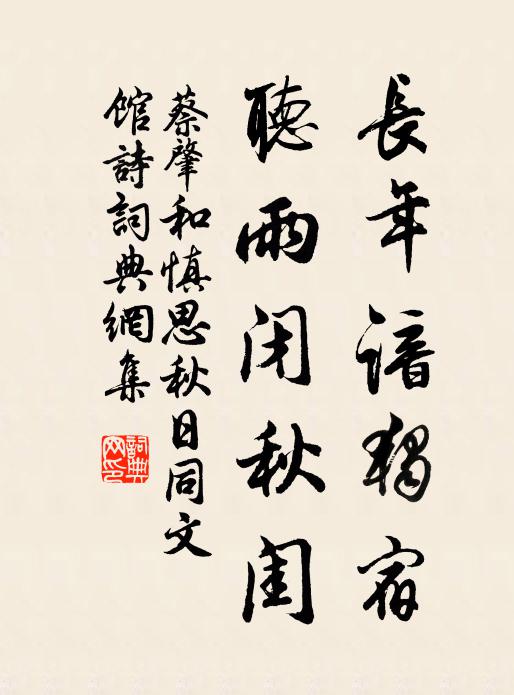 長年諳獨宿
聽雨閉秋閨
蔡肇和慎思秋日同文
館詩詞典網集
詞典网印